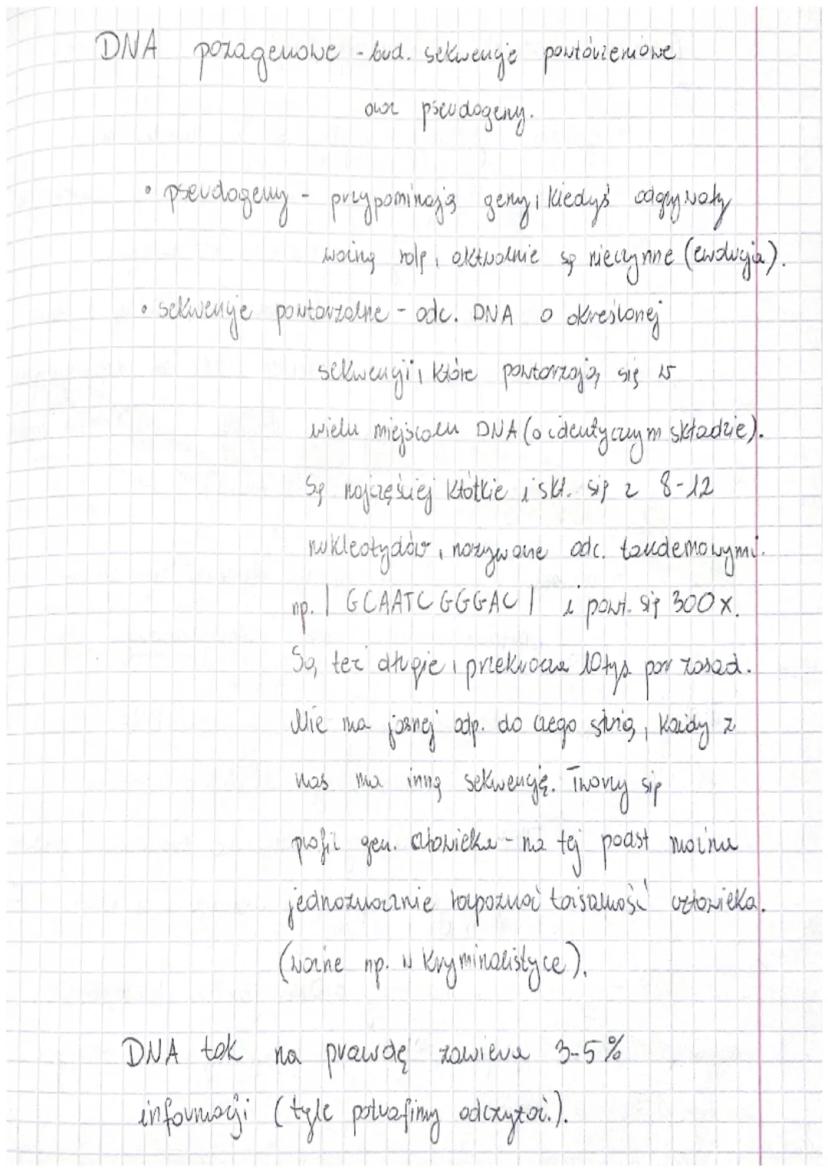 DNA pozagenowe - bud. sekwencje powtórzeniowe
oraz pseudogeny.
• pseudogeny - przypominają geny, kiedyś odgrywały
ważną rolę, aktualnie są nieczynne (ewolucja).
• sekwencje powtarzalne - odc. DNA o określonej
sekwencji, które powtarzają się w
wielu miejscach DNA (o identycznym składzie).
Są najczęściej krótkie i skł. się z 8-12
nukleotydów, nazywane odc. tandemowymi.
np. | GCAATCGGGAC | i powt. się 300x.
Są też długie, przekracza 10tys par zasad.
Nie ma jasnej odp. do czego służą, każdy z
nas ma inną sekwencję. Tworzy się
profil gen. człowieka - na tej podst można
jednoznacznie rozpoznać tożsamość człowieka.
(ważne np. w kryminalistyce).
DNA tak na prawdę zawiera 3-5%
informacji (tyle potrafimy odczytać.).